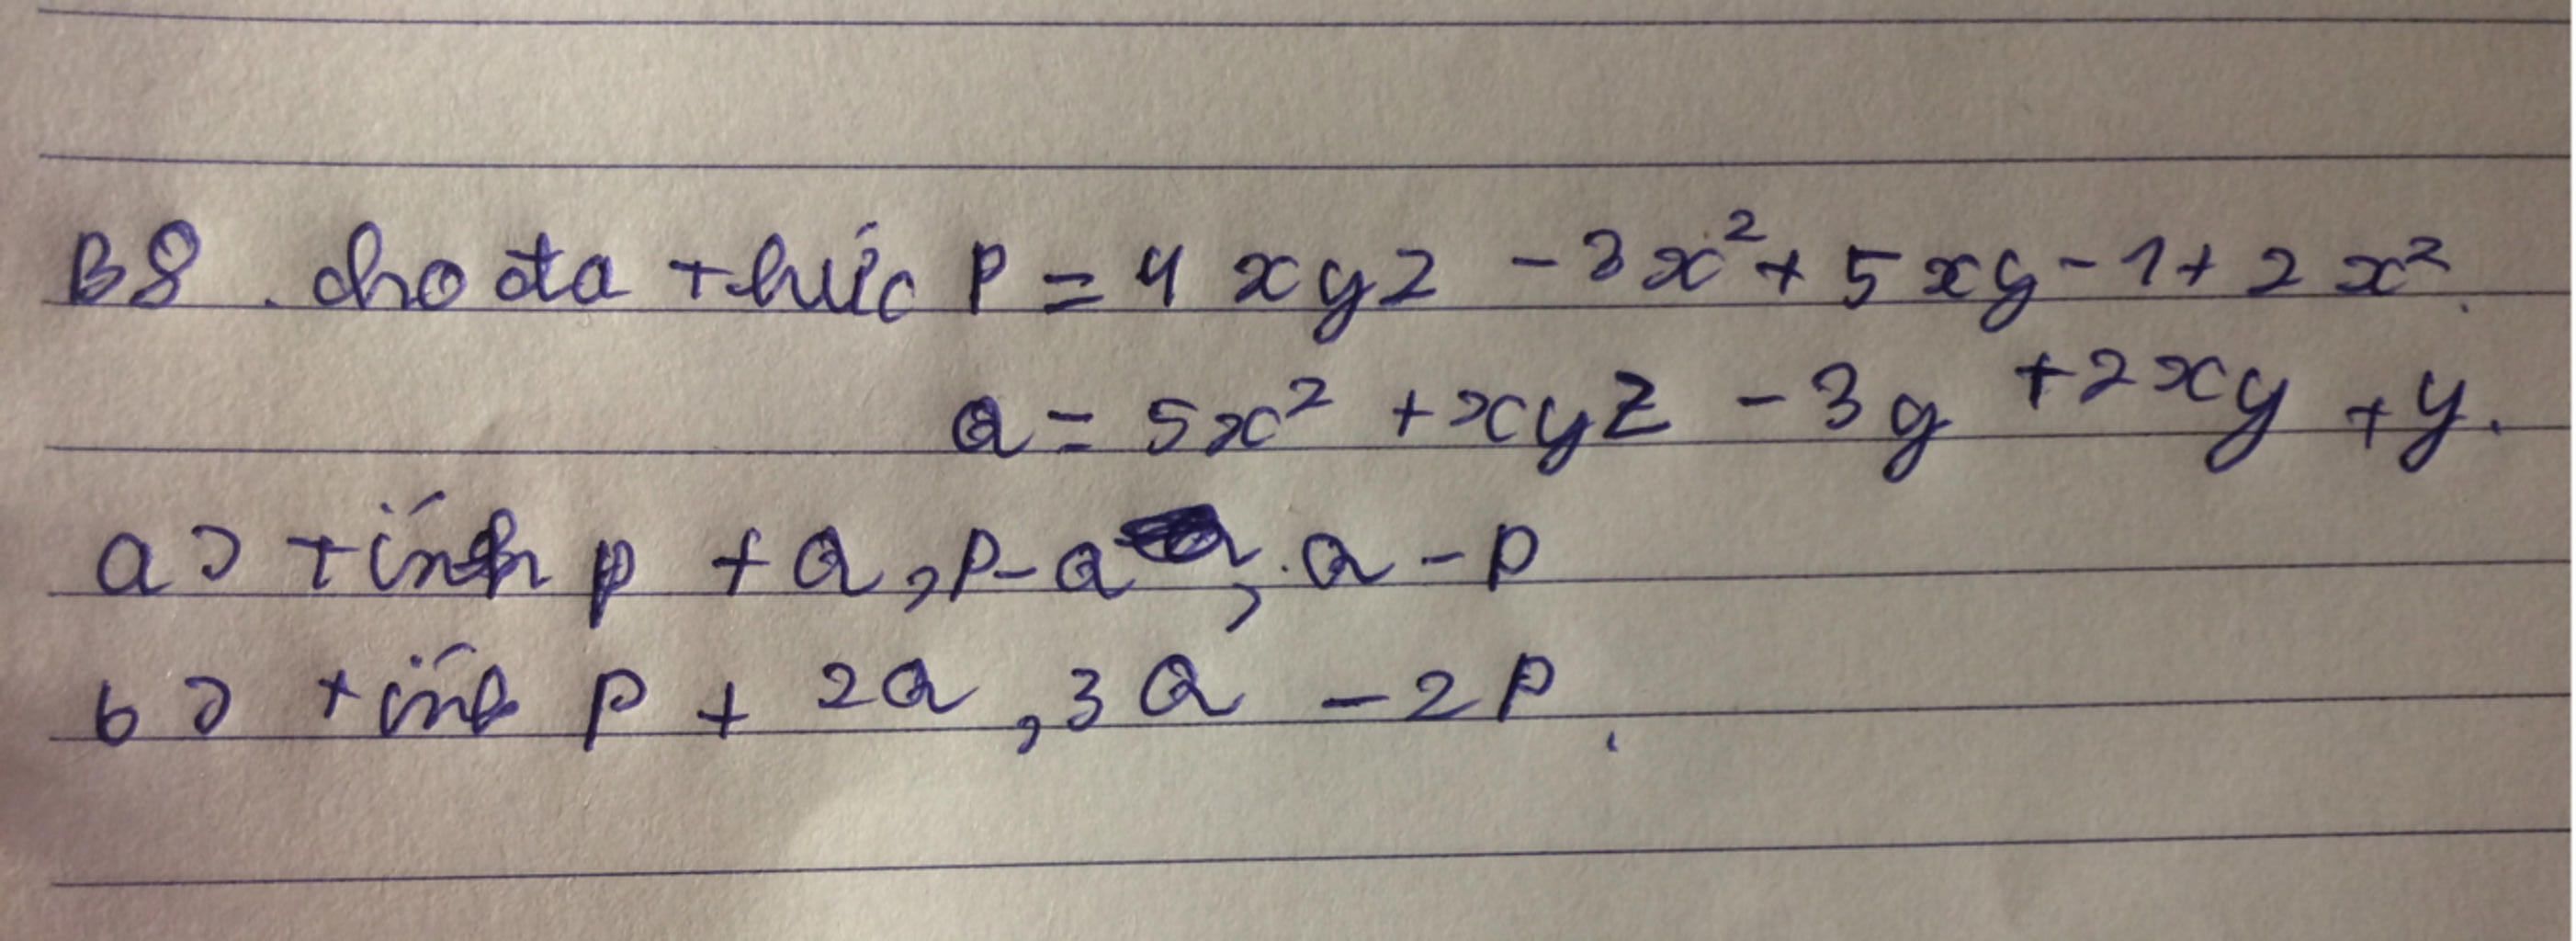 B8. cho đa thức P = 4xyz - 3x² + 5xy - 1 + 2x².
Q = 5x² + xyz - 3y + 2xy + y.
a) tính p + Q, P - Q, Q - P
b) tính P + 2Q, 3Q - 2P.